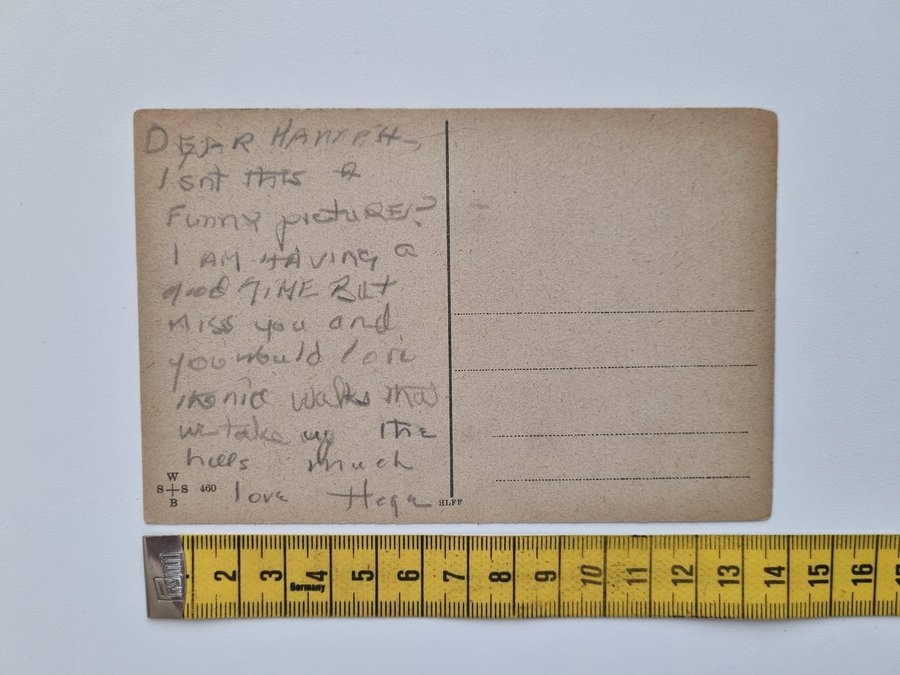 DEAR HANNAH,
Isnt this a
Funny picTURE?
I AM HAVING a
good TIME BUt
MISS you and
you would love
the nice walks that
we take up the
hills much
love
W
S S 460
B
HLFF
Germany
2 3 4 5 6 7 8 9 10 11 12 13 14 15 16